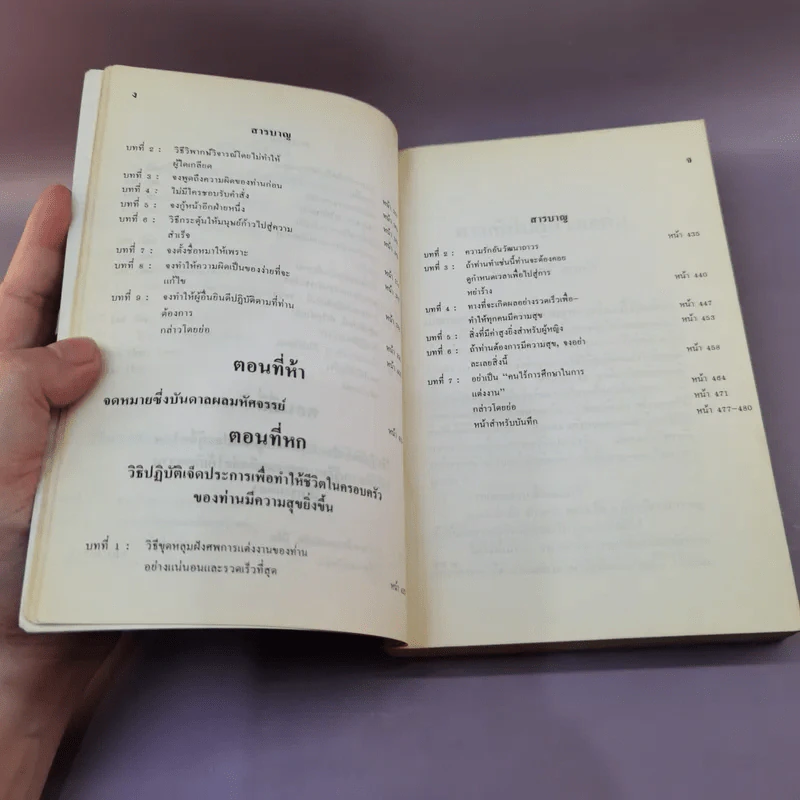 ง
สารบาญ
บทที่ 2 : วิธีวิพากษ์วิจารณ์โดยไม่ทำให้
ผู้ใดเกลียด
บทที่ 3 : จงพูดถึงความผิดของท่านก่อน
บทที่ 4 : ไม่มีใครชอบรับคำสั่ง
บทที่ 5 : จงกู้หน้าอีกฝ่ายหนึ่ง
บทที่ 6 : วิธีกระตุ้นให้มนุษย์ก้าวไปสู่ความ
สำเร็จ
บทที่ 7 : จงตั้งชื่อหมาให้เพราะ
บทที่ 8 : จงทำให้ความผิดเป็นของง่ายที่จะ
แก้ไข
บทที่ 9 : จงทำให้ผู้อื่นยินดีปฏิบัติตามที่ท่าน
ต้องการ
กล่าวโดยย่อ
ตอนที่ห้า
จดหมายซึ่งบันดาลผลมหัศจรรย์
ตอนที่หก
วิธีปฏิบัติเจ็ดประการเพื่อทำให้ชีวิตในครอบครัว
ของท่านมีความสุขยิ่งขึ้น
บทที่ 1 : วิธีขุดหลุมฝังศพการแต่งงานของท่าน
อย่างแน่นอนและรวดเร็วที่สุด หน้า
สารบาญ
บทที่ 2 : ความรักอันวัฒนาถาวร หน้า 435
บทที่ 3 : ถ้าท่านทำเช่นนี้ท่านจะต้องคอย
ดูกำหนดเวลาเพื่อไปสู่การ
หย่าร้าง หน้า 440
บทที่ 4 : ทางที่จะเกิดผลอย่างรวดเร็วเพื่อ–
ทำให้ทุกคนมีความสุข หน้า 447
บทที่ 5 : สิ่งที่มีค่าสูงยิ่งสำหรับผู้หญิง หน้า 453
บทที่ 6 : ถ้าท่านต้องการมีความสุข, จงอย่า
ละเลยสิ่งนี้ หน้า 458
บทที่ 7 : อย่าเป็น "คนไร้การศึกษาในการ
แต่งงาน" หน้า 464
กล่าวโดยย่อ หน้า 471
หน้าสำหรับบันทึก หน้า 477–480